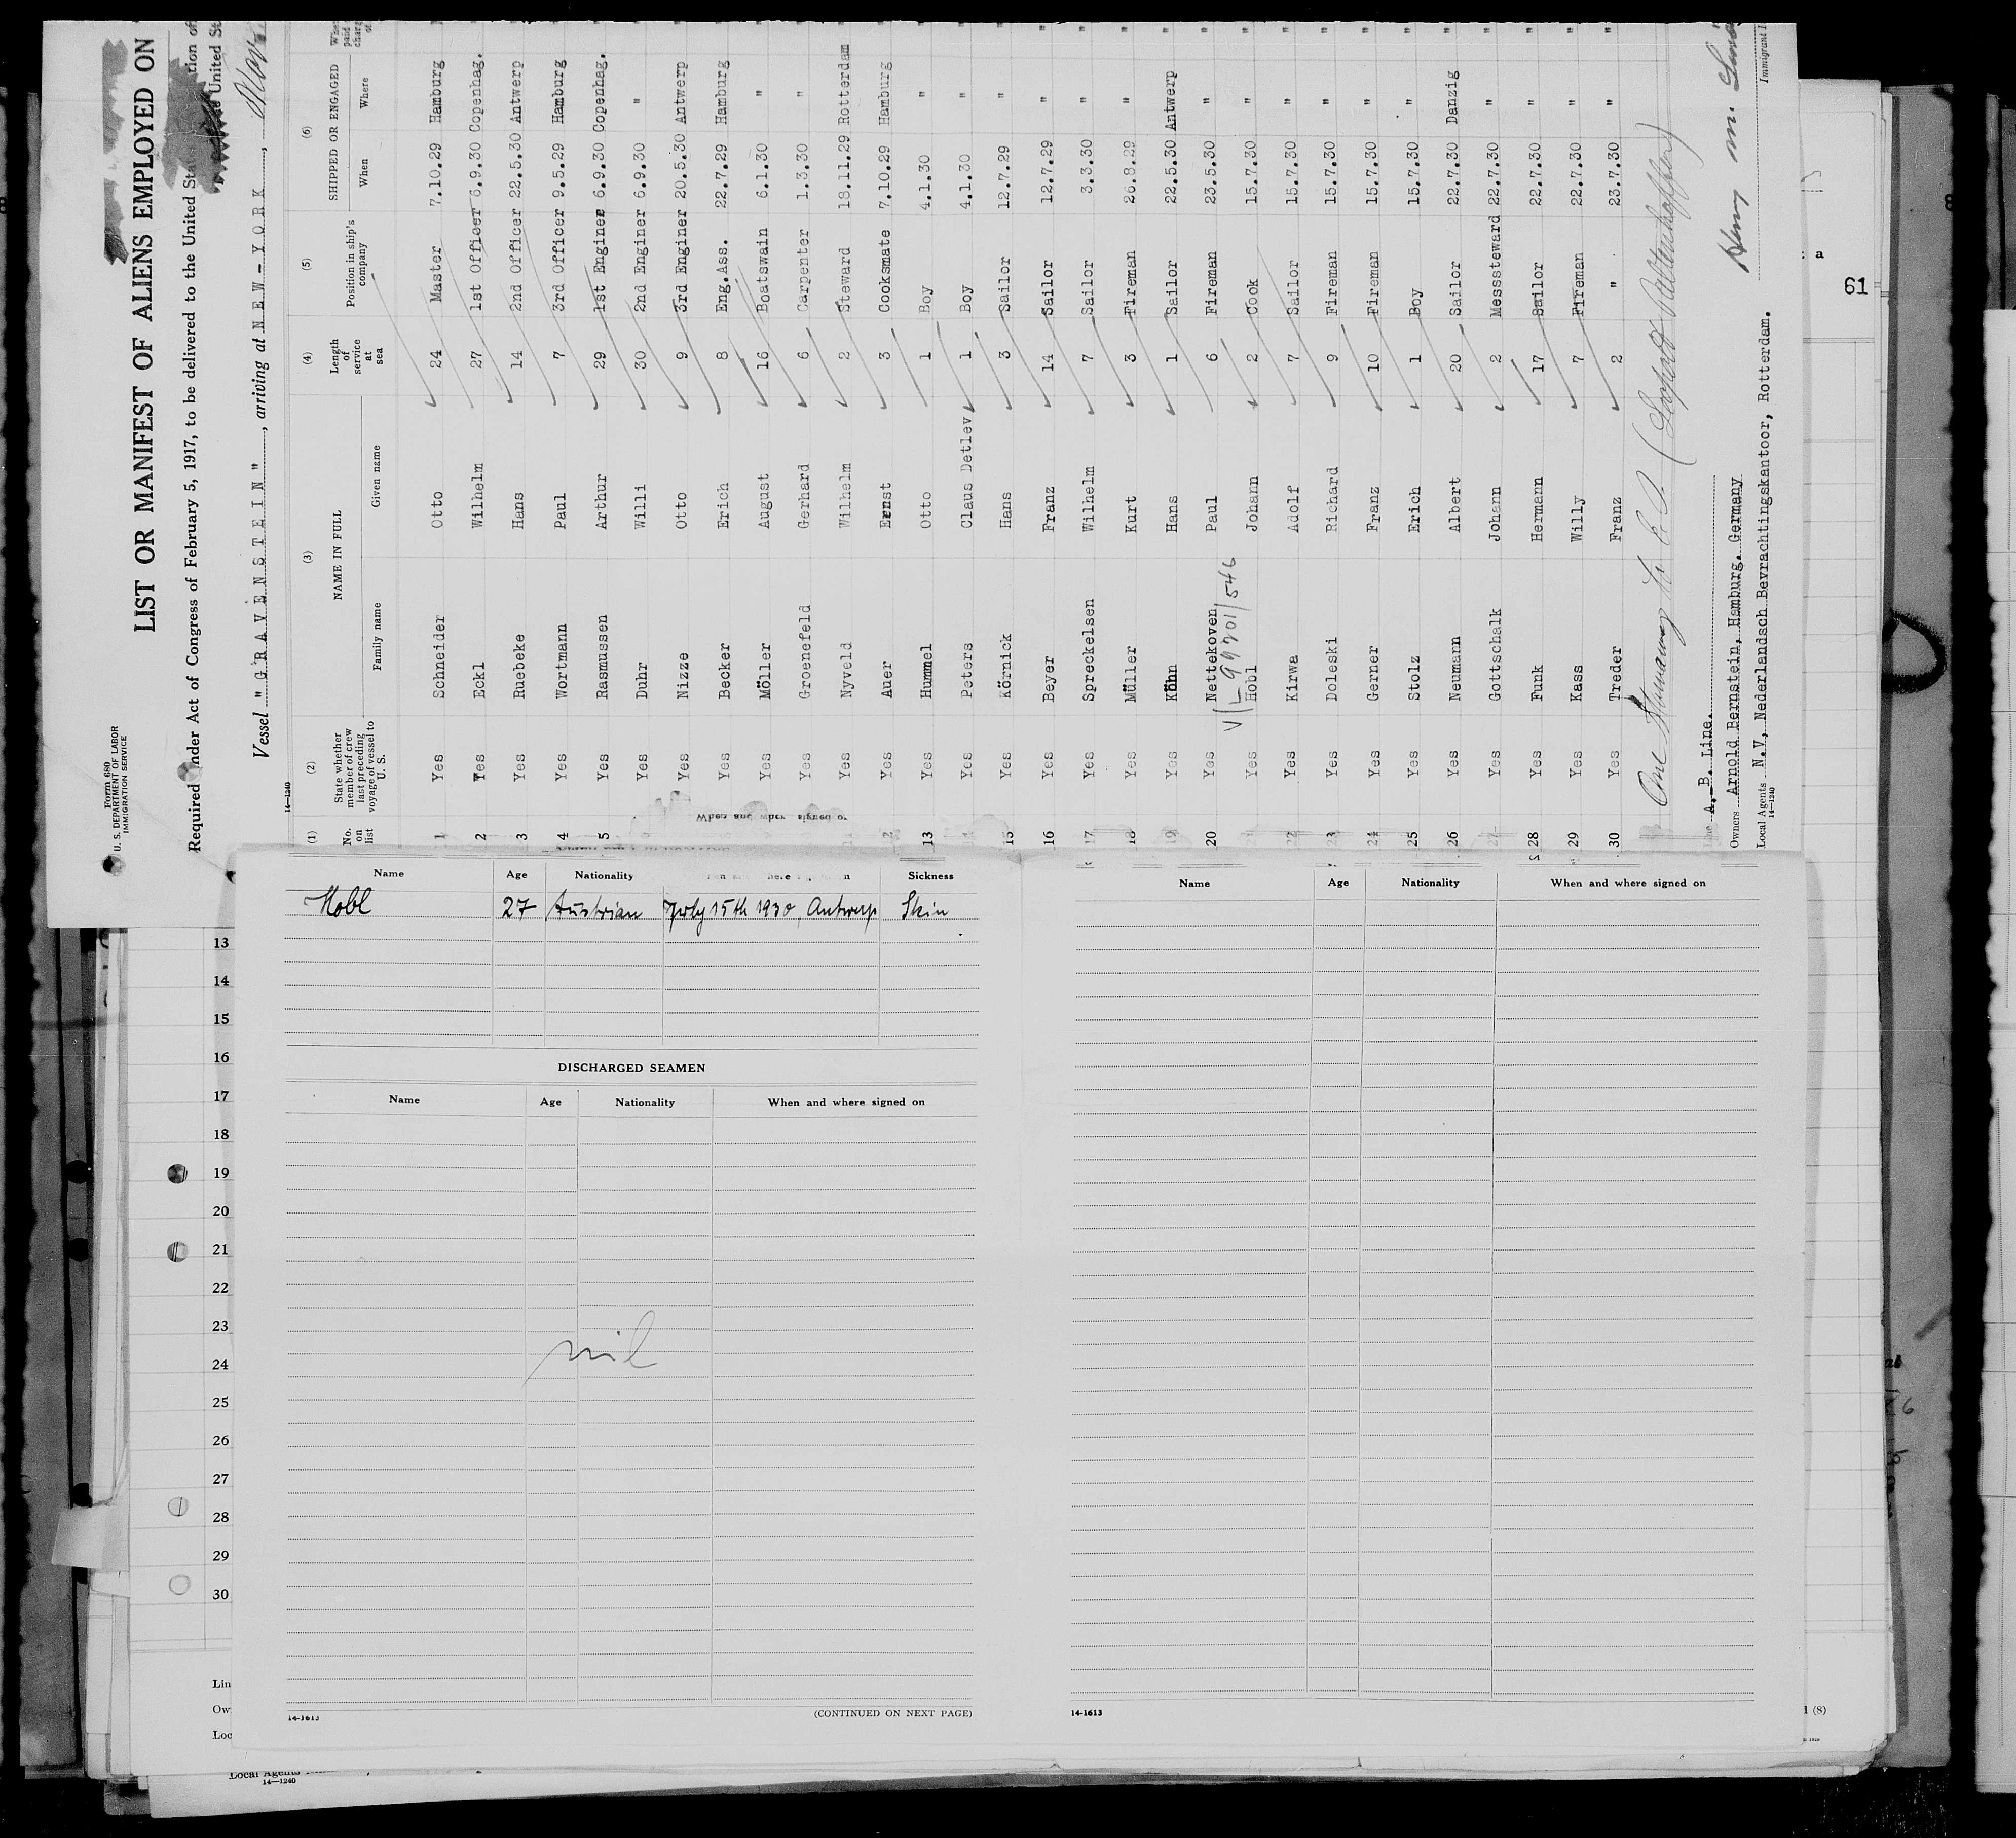 Form 680
U. S. DEPARTMENT OF LABOR
IMMIGRATION SERVICE
LIST OR MANIFEST OF ALIENS EMPLOYED ON
Required under Act of Congress of February 5, 1917, to be delivered to the United
tion of
United St
Vessel "GRAVENSTEIN", arriving at NEW-YORK, Nov
14—1240
(1) (2) (3) (4) (5) (6)
No. on list State whether member of crew last preceding voyage of vessel to U. S. NAME IN FULL Length of service at sea Position in ship's company SHIPPED OR ENGAGED
Family name Given name When Where
1 Yes Schneider Otto 24 Master 7.10.29 Hamburg "
2 Yes Eckl Wilhelm 27 1st Officer 6.9.30 Copenhag. "
3 Yes Ruebeke Hans 14 2nd Officer 22.5.30 Antwerp "
4 Yes Wortmann Paul 7 3rd Officer 9.5.29 Hamburg "
5 Yes Rasmussen Arthur 29 1st Enginer 6.9.30 Copenhag. "
Yes Duhr Willi 30 2nd Enginer 6.9.30 " "
Yes Nizze Otto 9 3rd Enginer 20.5.30 Antwerp "
Yes Becker Erich 8 Eng.Ass. 22.7.29 Hamburg "
Yes Möller August 16 Boatswain 6.1.30 " "
Yes Groenefeld Gerhard 6 Carpenter 1.3.30 " "
Yes Nyveld Wilhelm 2 Steward 18.11.29 Rotterdam
12 Yes Auer Ernst 3 Cooksmate 7.10.29 Hamburg "
13 Yes Hummel Otto 1 Boy 4.1.30 " "
14 Yes Peters Claus Detlev 1 Boy 4.1.30 " "
15 Yes Körnick Hans 3 Sailor 12.7.29 " "
16 Yes Beyer Franz 14 Sailor 12.7.29 " "
17 Yes Spreckelsen Wilhelm 7 Sailor 3.3.30 " "
18 Yes Müller Kurt 3 Fireman 26.8.29 " "
19 Yes Köhn Hans 1 Sailor 22.5.30 Antwerp "
20 Yes Nettekoven Paul 6 Fireman 23.5.30 " "
Yes Hobl Johann 2 Cook 15.7.30 " "
22 Yes Kirwa Adolf 7 Sailor 15.7.30 " "
23 Yes Doleski Richard 9 Fireman 15.7.30 " "
24 Yes Gerner Franz 10 Fireman 15.7.30 " "
25 Yes Stolz Erich 1 Boy 15.7.30 " "
26 Yes Neumann Albert 20 Sailor 22.7.30 Danzig "
27 Yes Gottschalk Johann 2 Messsteward 22.7.30 " "
28 Yes Funk Hermann 17 Sailor 22.7.30 " "
29 Yes Kass Willy 7 Fireman 22.7.30 " "
30 Yes Treder Franz 2 " 23.7.30 " "
A. B. Line.
Owners Arnold Bernstein, Hamburg. Germany
Local Agents N.V, Nederlandsch Bevrachtingskantoor, Rotterdam.
14—1240
Immigrant I
61
Name Age Nationality Sickness
Hobl 27 Austrian July 15th 1930, Antwerp Skin
DISCHARGED SEAMEN
Name Age Nationality When and where signed on
nil
14-1613
(CONTINUED ON NEXT PAGE)
Name Age Nationality When and where signed on
14-1613
13
14
15
16
17
18
19
20
21
22
23
24
25
26
27
28
29
30
Lin
Ow
Loc
Local Agents
14—1240
(8)